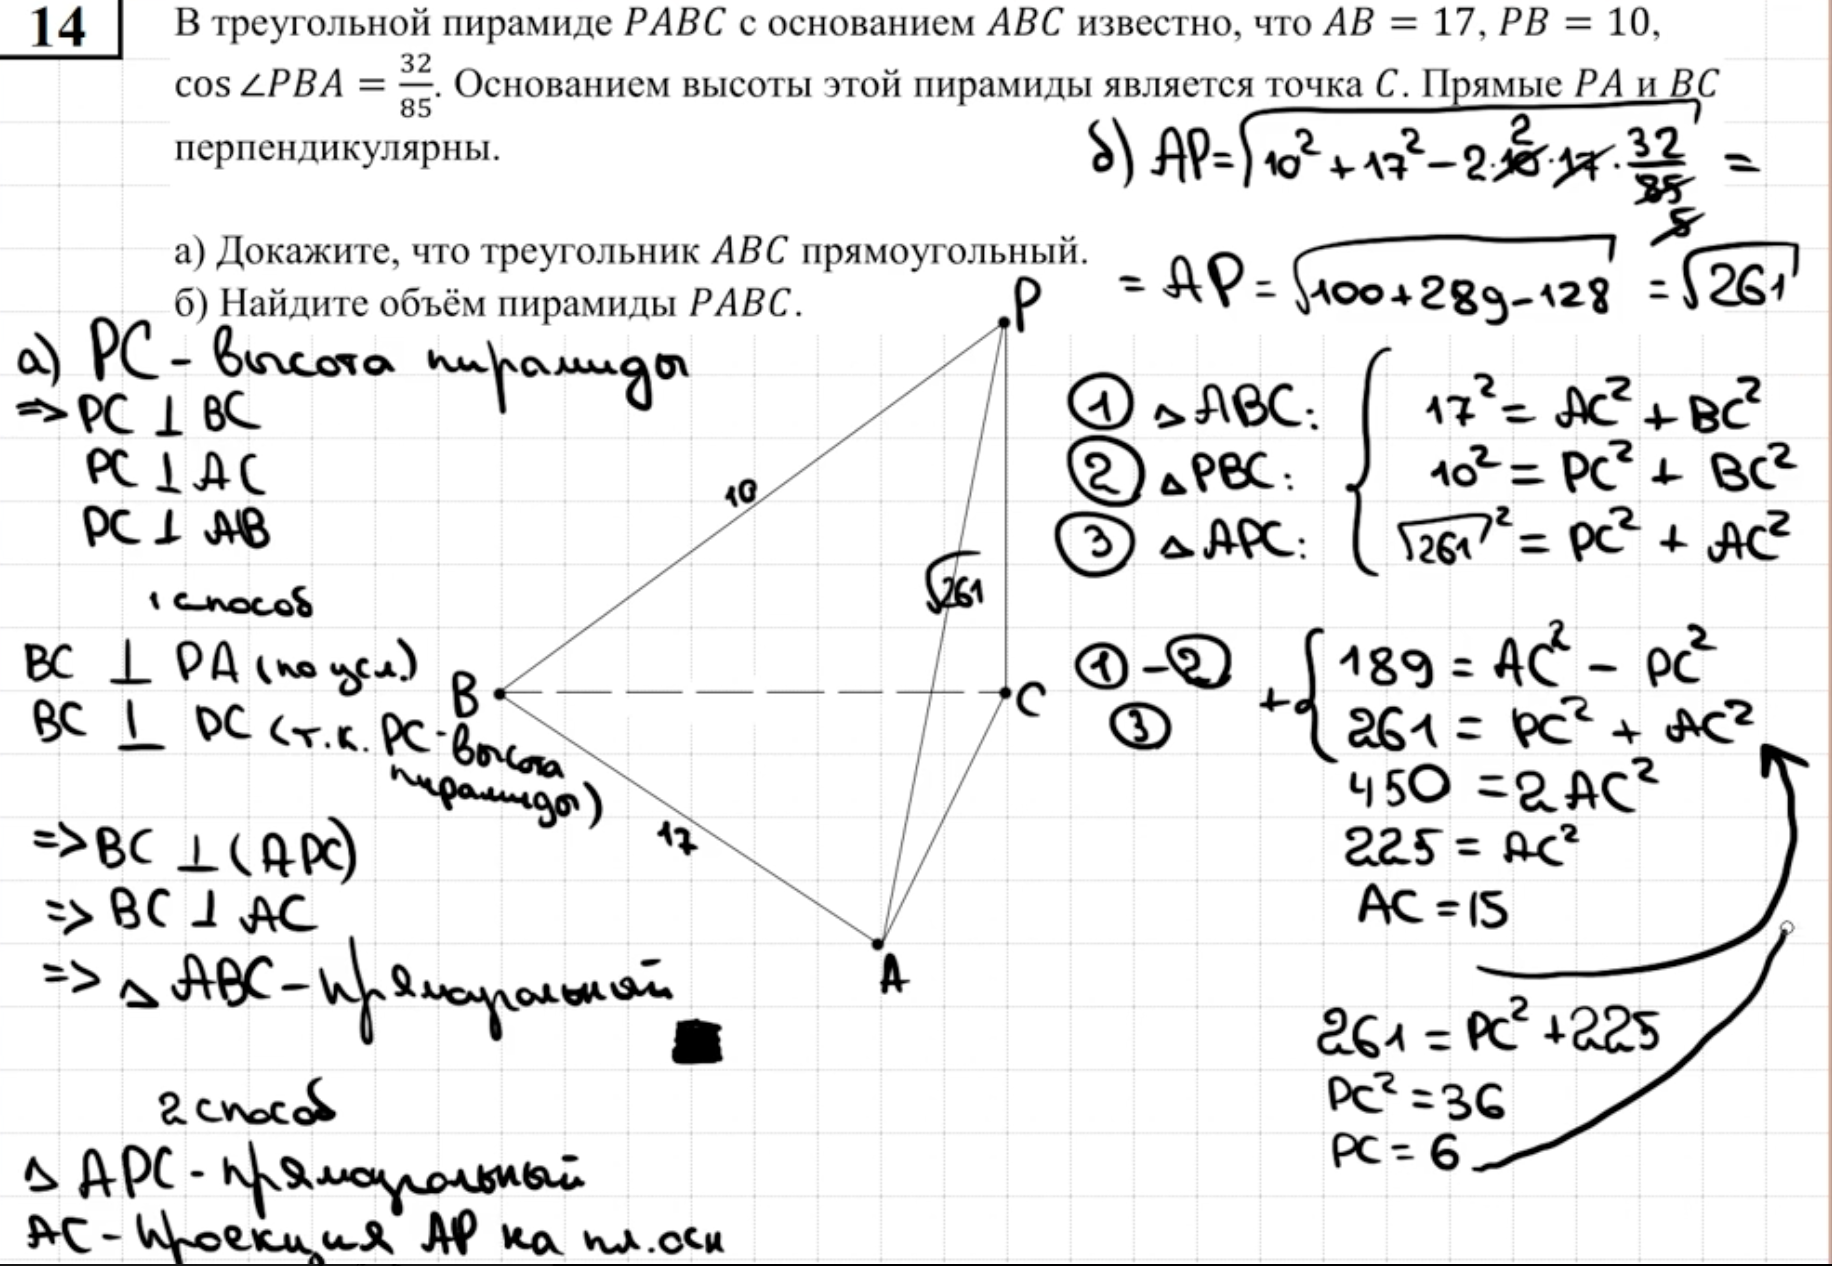 14
В треугольной пирамиде PABC с основанием ABC известно, что AB = 17, PB = 10,
cos ∠PBA = 32/85. Основанием высоты этой пирамиды является точка C. Прямые PA и BC
перпендикулярны.
а) Докажите, что треугольник ABC прямоугольный.
б) Найдите объём пирамиды PABC.
а) PC - высота пирамиды
=> PC ⊥ BC
PC ⊥ AC
PC ⊥ AB
1 способ
BC ⊥ PA (по усл.)
BC ⊥ PC (т.к. PC - высота
пирамиды)
=> BC ⊥ (APC)
=> BC ⊥ AC
=> △ ABC - прямоугольный
2 способ
△ APC - прямоугольный
AC - проекция AP на пл. осн
P
10
√261
B
C
17
A
б) AP = √10² + 17² - 2 · 10 2 · 17 · 32/85 5 =
= AP = √100 + 289 - 128 = √261
① △ ABC: 17² = AC² + BC²
② △ PBC: 10² = PC² + BC²
③ △ APC: √261² = PC² + AC²
① - ② 189 = AC² - PC²
③ + 261 = PC² + AC²
450 = 2 AC²
225 = AC²
AC = 15
261 = PC² + 225
PC² = 36
PC = 6